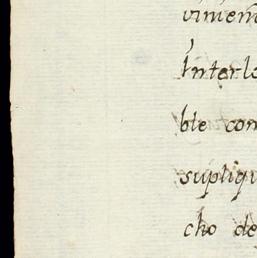 viniem
Interlo
ble con
supliqu
cho de